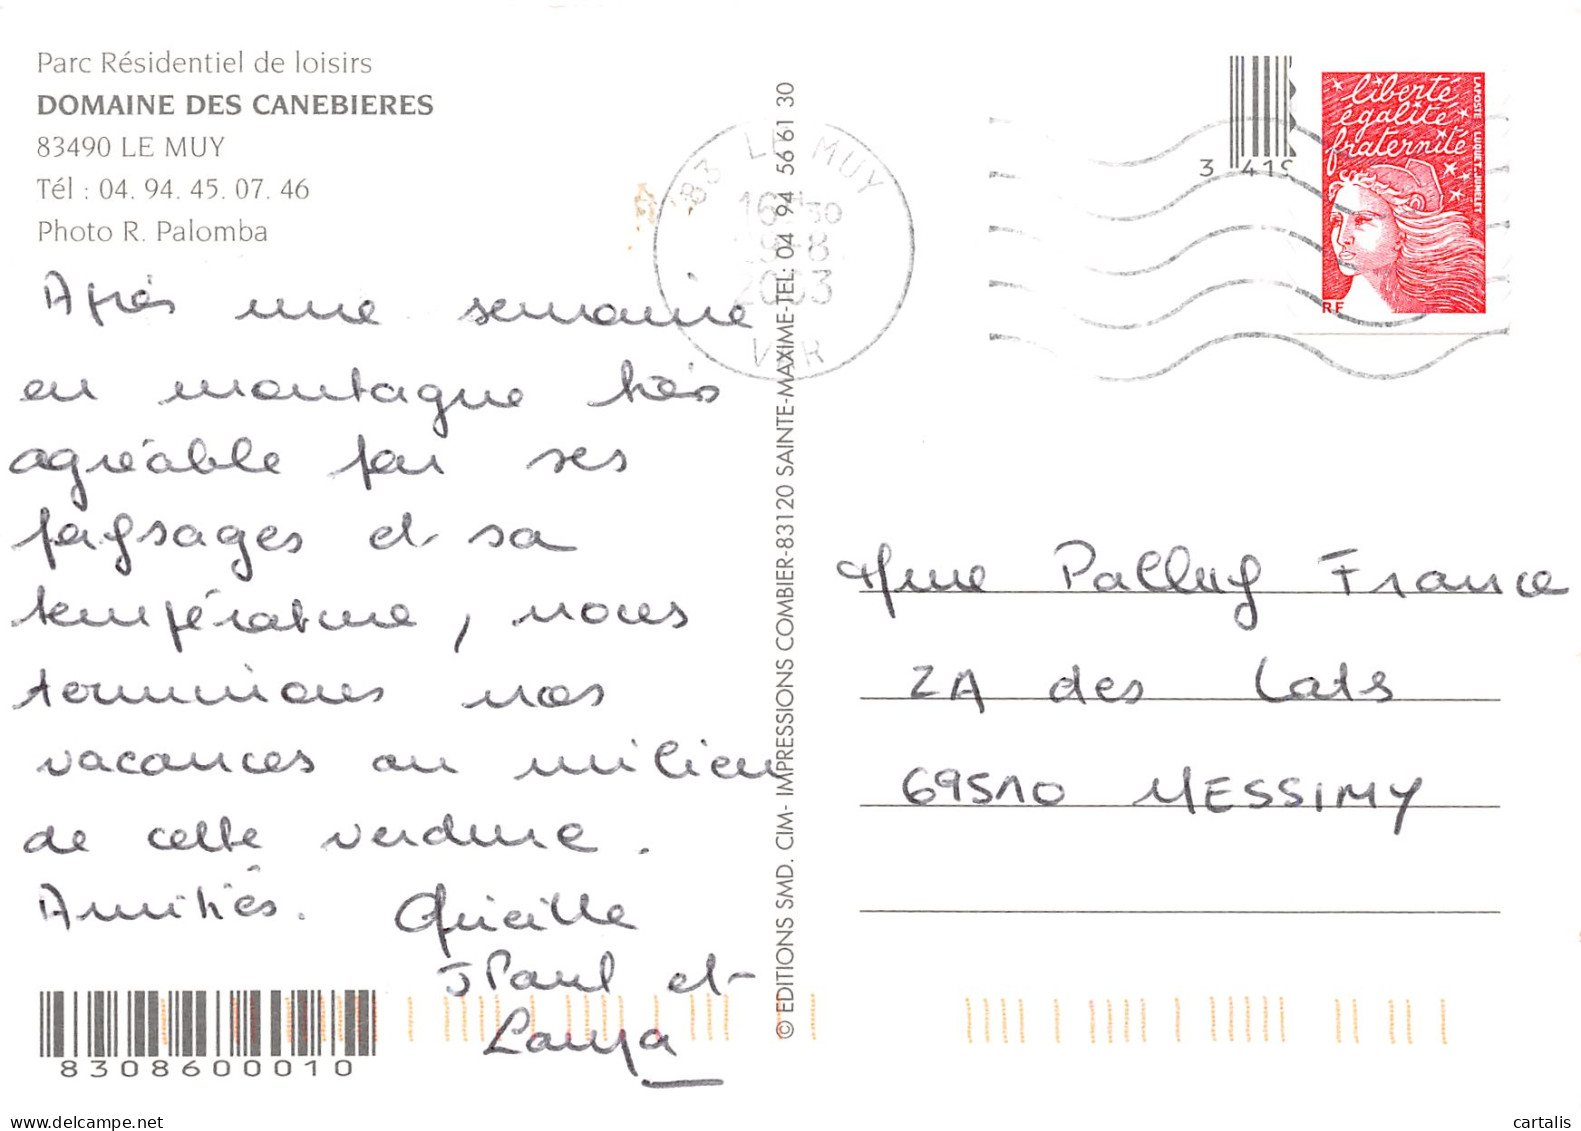 Parc Résidentiel de loisirs
DOMAINE DES CANEBIERES
83490 LE MUY
Tél : 04. 94. 45. 07. 46
Photo R. Palomba
Après une semaine
en montagne très
agréable par ses
paysages et sa
température, nous
terminons nos
vacances au milieu
de cette verdure.
Amitiés.
J Paul et
8308600010
© EDITIONS SMD. CIM- IMPRESSIONS COMBIER-83120 SAINTE-MAXIME-TEL: 04 94 56 61 30
83 LE MUY
16H30
9-8
2003
VAR
3 419
liberté
égalité
fraternité
LAPOSTE LUQUET-JUMELET
RF
Mme Palluy France
ZA des Lats
69510 MESSIMY
cartalis
www.delcampe.net